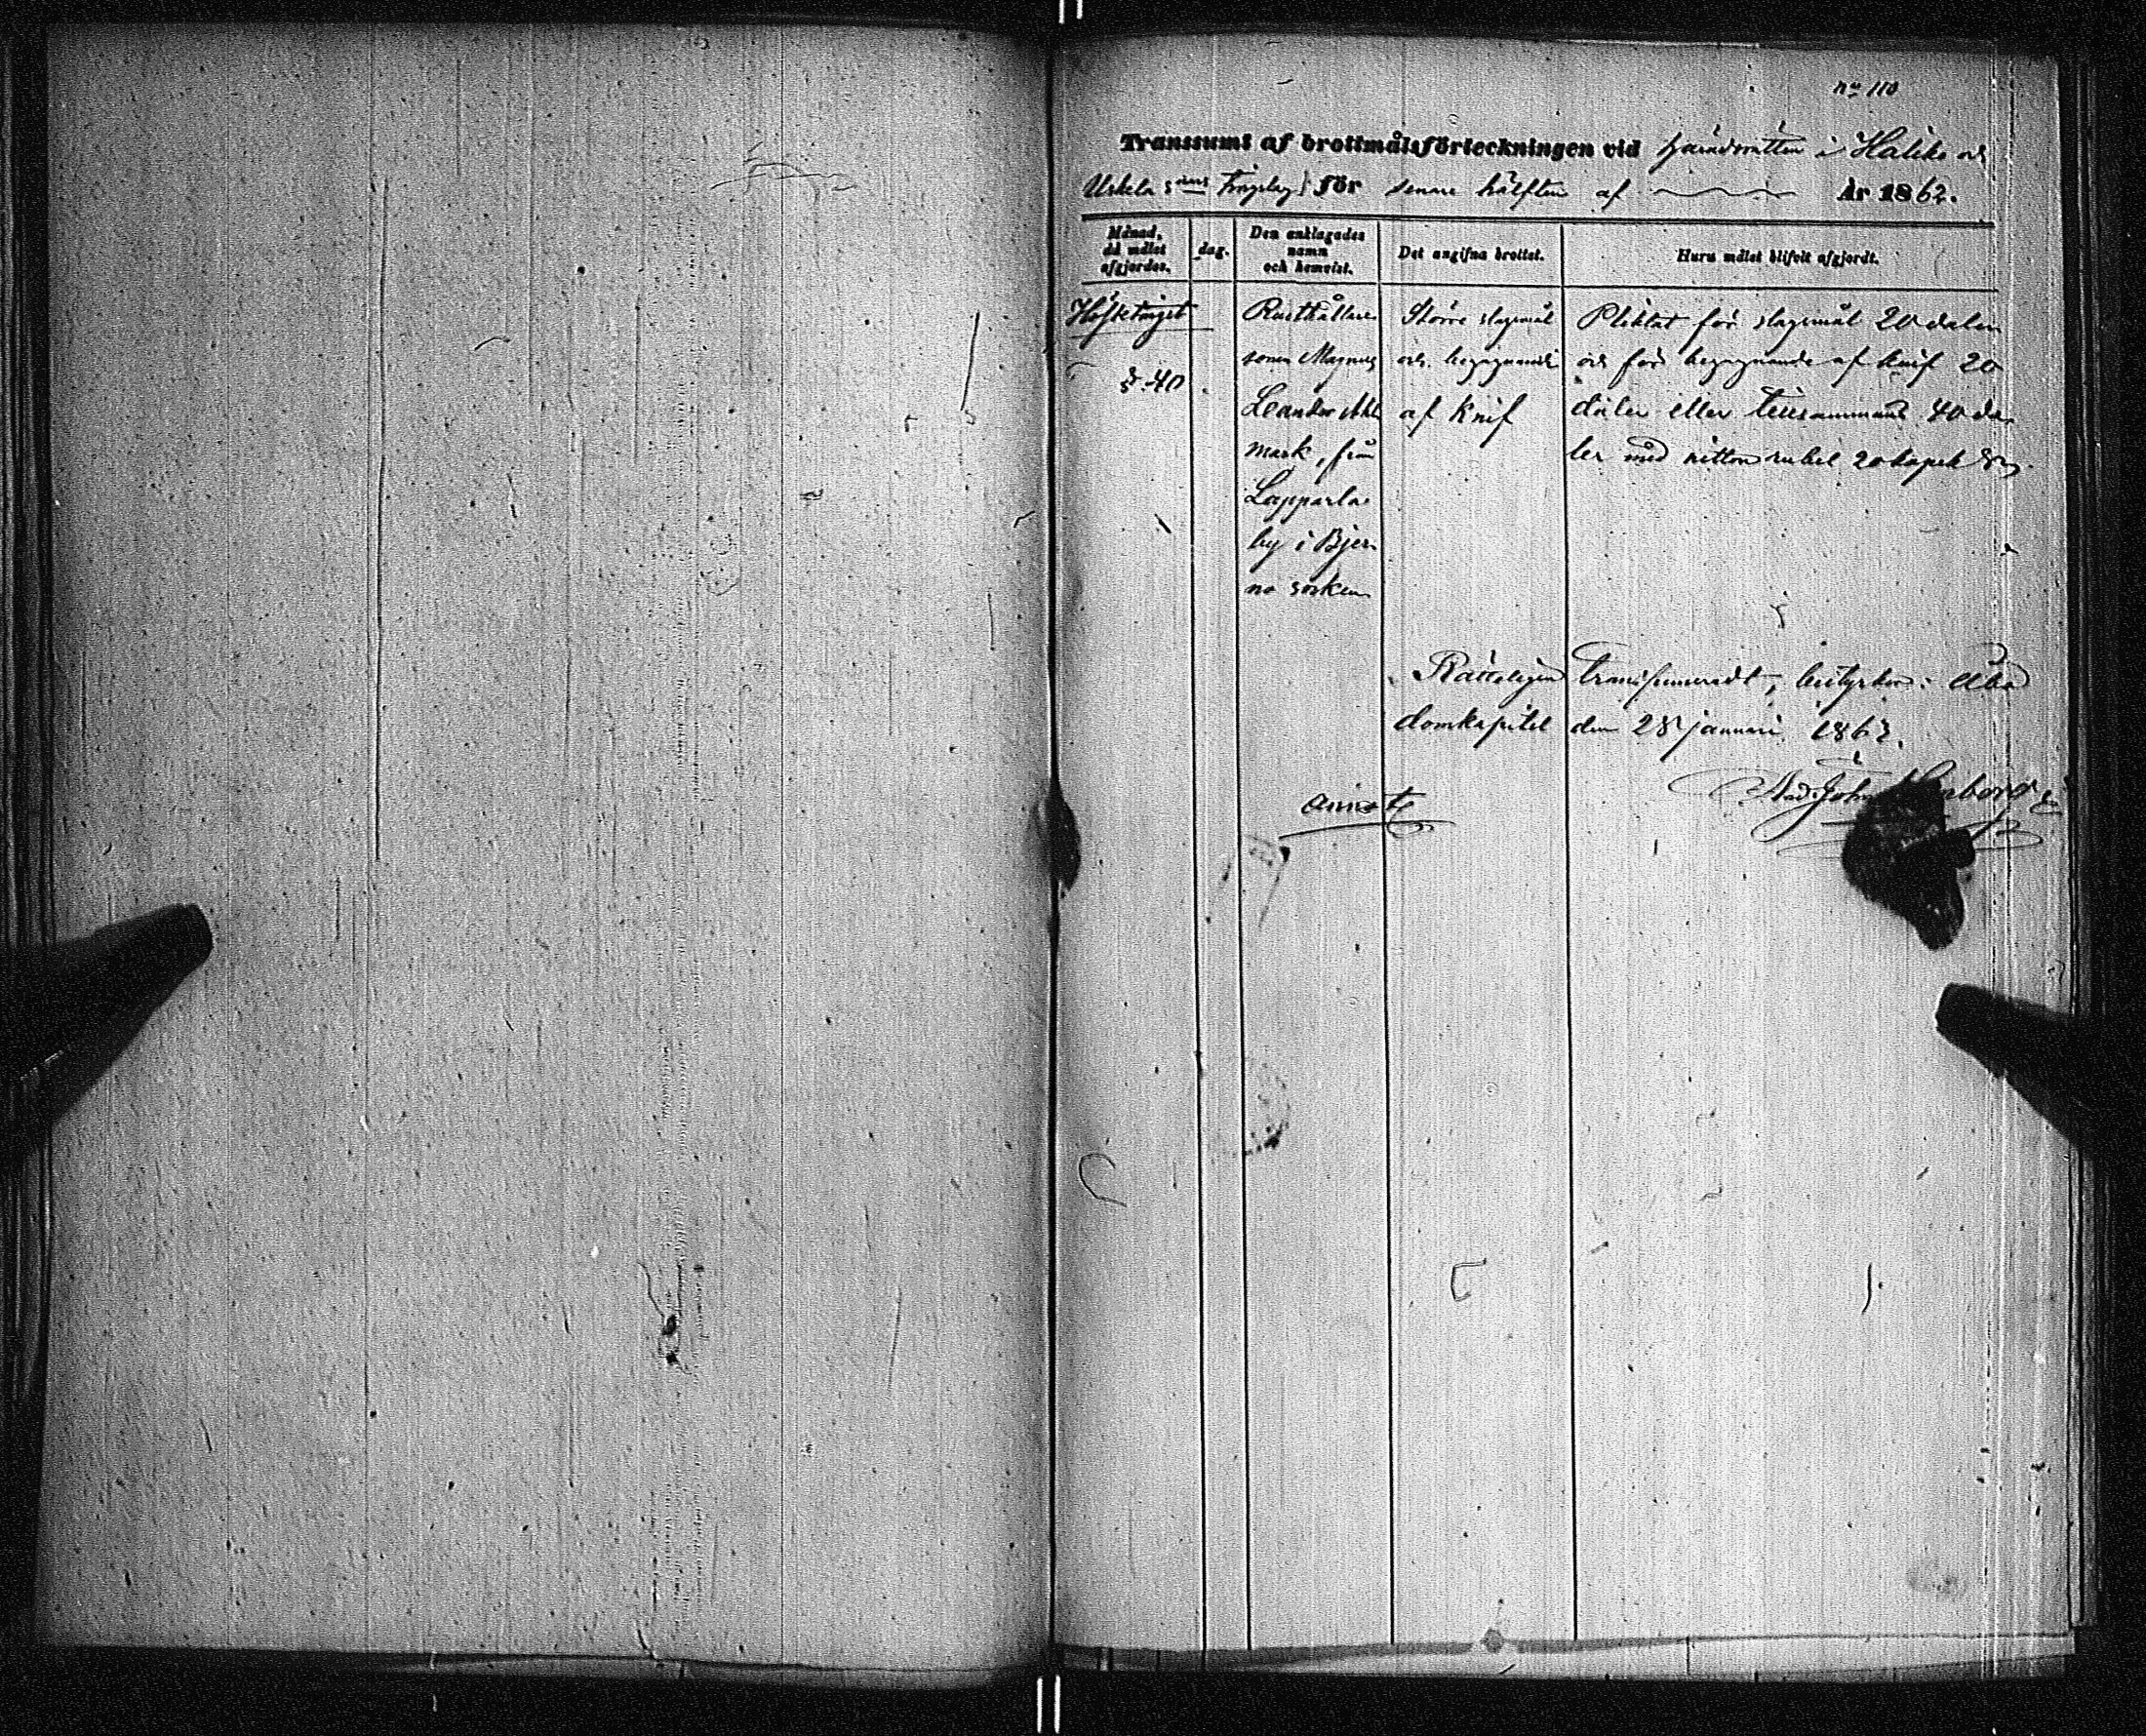 no 110
Transsumt af brottmålsförteckningen vid häradsrätten i Haliko och
Uskela sns Tingslag för senare hälften af År 1862.
Månad, då målet afgjordes.
dag.
Den anklagades namn och hemvist.
Det angifna brottet.
Huru målet blifvit afgjordt.
Höstetinget
§. 40
Rusthållare
sonen Magnus
Leander
mark, från
Lapparla
by i Bjer
no socken
Större slagsmål
och begagnande
af Knif
Pliktat för slagsmål 20 daler
och för begagnande af knif 20
daler eller tillsammans 40 da
ler med nitton rubel 20 kopek Sr.
Rätteligen transsumeradt, bestyrker: Åbo
domkapitel den 28 januari 1863.